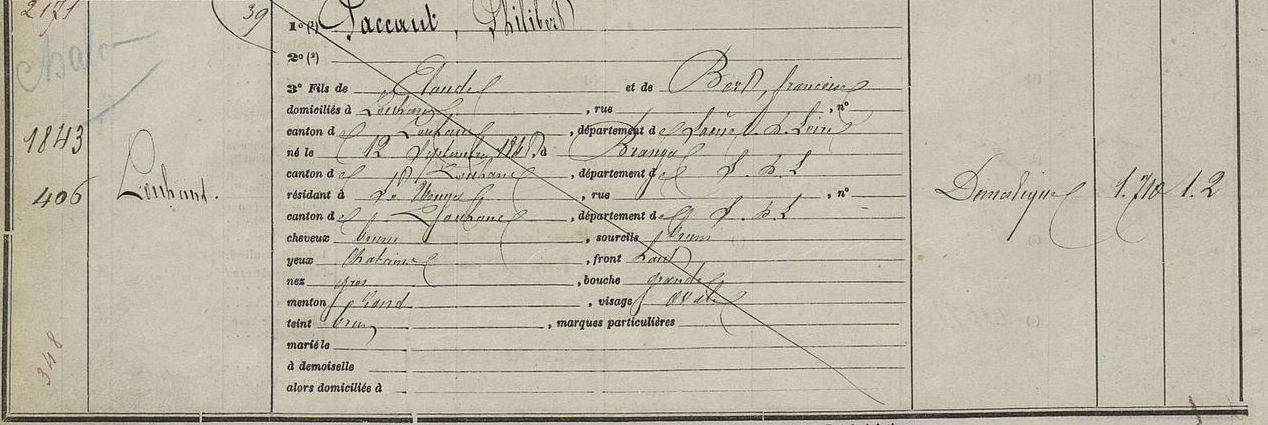 2171
39
1° (¹) Paccaut, Philibert
Chalon
2° (²)
3° Fils de Claude et de Berd, françoise
domiciliés à Louhans, rue , n°
canton de Louhans, département de Saône & Loire
1843
né le 12 Septembre 184 à Branges
canton de Louhans, département de S. & L
406
Louhans.
résidant à , rue , n°
Domestique
1.710
1.2
canton de Louhans, département de S. & L
cheveux bruns, sourcils bruns
yeux Chatains, front haut
nez gros, bouche grande
menton rond, visage ovale
teint brun, marques particulières
marié le
348
à demoiselle
alors domiciliée à